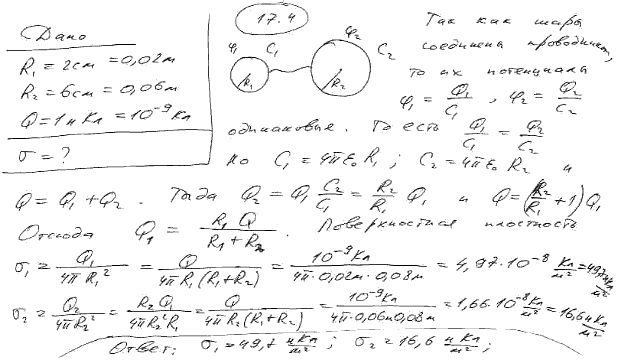 17.4
Дано
R₁ = 2см = 0,02м
R₂ = 6см = 0,06м
Q = 1 н Кл = 10⁻⁹ Кл
σ = ?
φ₁ C₁ φ₂ C₂
R₁ R₂
Так как шары
соединены проводником,
то их потенциала
φ₁ = Q₁/C₁ , φ₂ = Q₂/C₂
одинаковые. То есть Q₁/C₁ = Q₂/C₂
но C₁ = 4πε₀ R₁ ; C₂ = 4πε₀ R₂ и
Q = Q₁ + Q₂ . Тогда Q₂ = Q₁ C₂/C₁ = R₂/R₁ Q₁ и Q = (R₂/R₁ + 1) Q₁
Отсюда Q₁ = R₁ Q/(R₁ + R₂) . Поверхностная плотность
σ₁ = Q₁/4πR₁² = Q/4πR₁(R₁+R₂) = 10⁻⁹Кл/4π·0,02м·0,08м = 4,97·10⁻⁸ Кл/м² = 49,7 нКл/м²
σ₂ = Q₂/4πR₂² = R₂Q₁/4πR₂²R₁ = Q/4πR₂(R₁+R₂) = 10⁻⁹Кл/4π·0,06м·0,08м = 1,66·10⁻⁸ Кл/м² = 16,6 нКл/м²
Ответ: σ₁ = 49,7 нКл/м² ; σ₂ = 16,6 нКл/м² ;